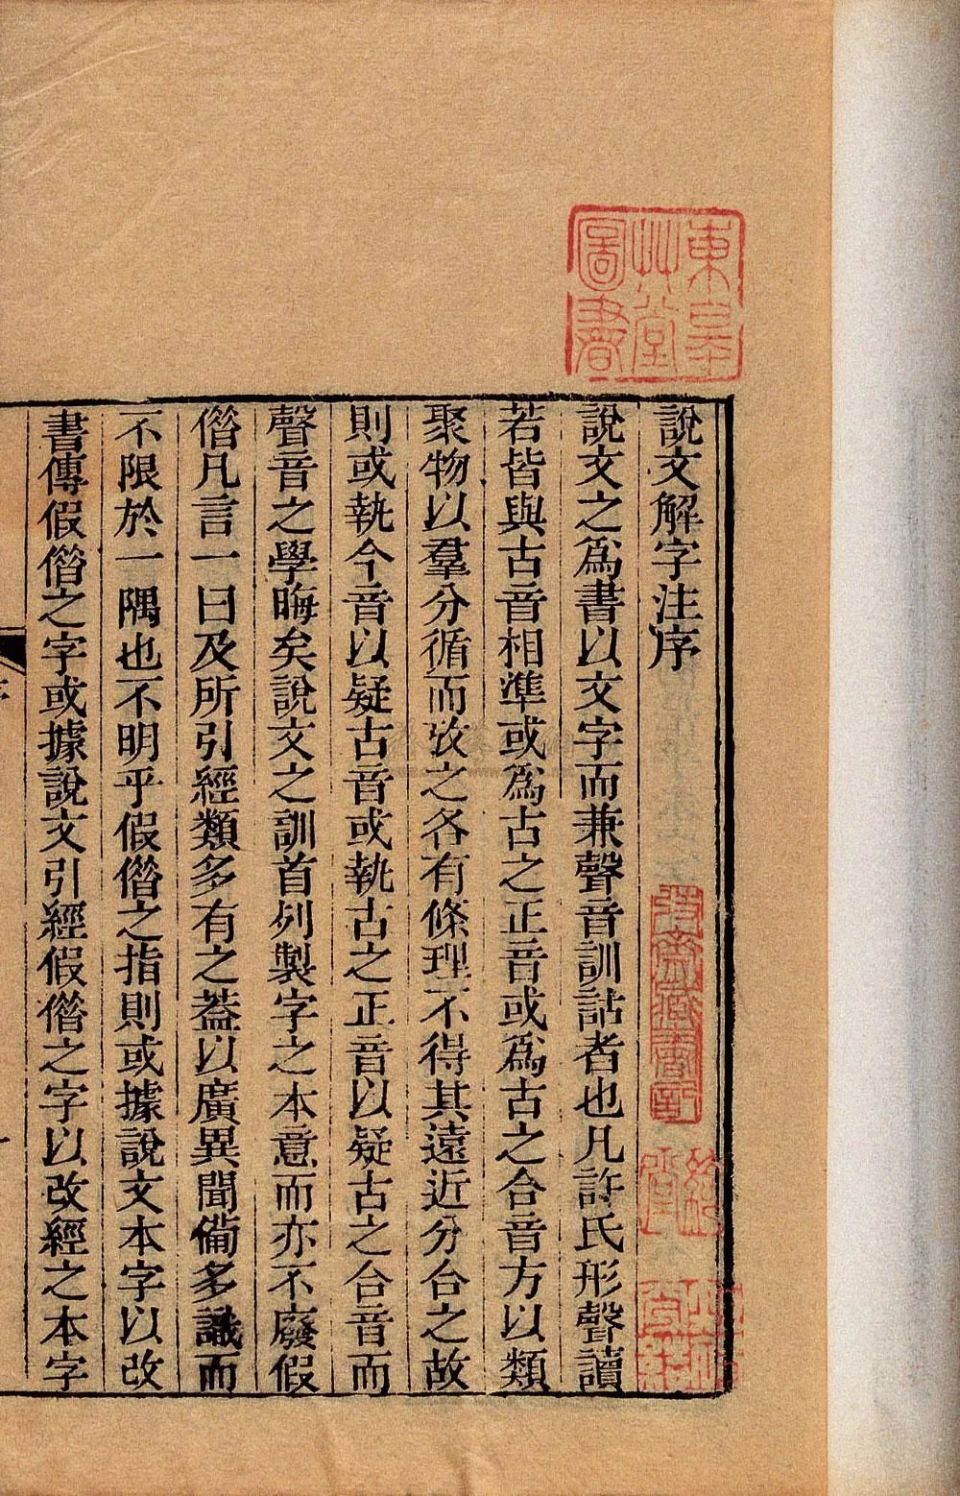 東皋
艸堂
圖書
說文解字注序
說文之爲書以文字而兼聲音訓詁者也凡許氏形聲讀
若皆與古音相準或爲古之正音或爲古之合音方以類
聚物以羣分循而攷之各有條理不得其遠近分合之故
則或執今音以疑古音或執古之正音以疑古之合音而
聲音之學晦矣說文之訓首列製字之本意而亦不廢假
僭凡言一曰及所引經類多有之葢以廣異聞備多識而
不限於一隅也不明乎假僭之指則或據說文本字以改
書傳假僭之字或據說文引經假僭之字以改經之本字
序
一